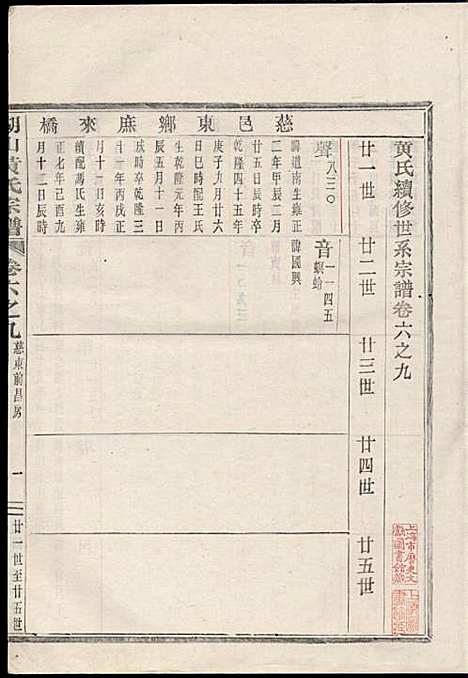 黃氏續修世系宗譜卷六之九
廿一世
廿二世
廿三世
廿四世
廿五世
慈邑東鄉庶來橋
聲八三〇
諱道南生雍正
二年甲辰二月
廿五日辰時卒
乾隆四十五年
庚子九月廿六
日巳時配王氏
生乾隆元年丙
辰五月十一日
戌時卒乾隆三
十一年丙戌正
月十一日亥時
續配馮氏生雍
正七年己酉九
月十三日辰時
音一一四五
諱國興
螟蛉
黃氏宗譜
卷六之九
慈東前昌房
一
廿一世至廿五世
上海市歷史文
獻圖書館藏